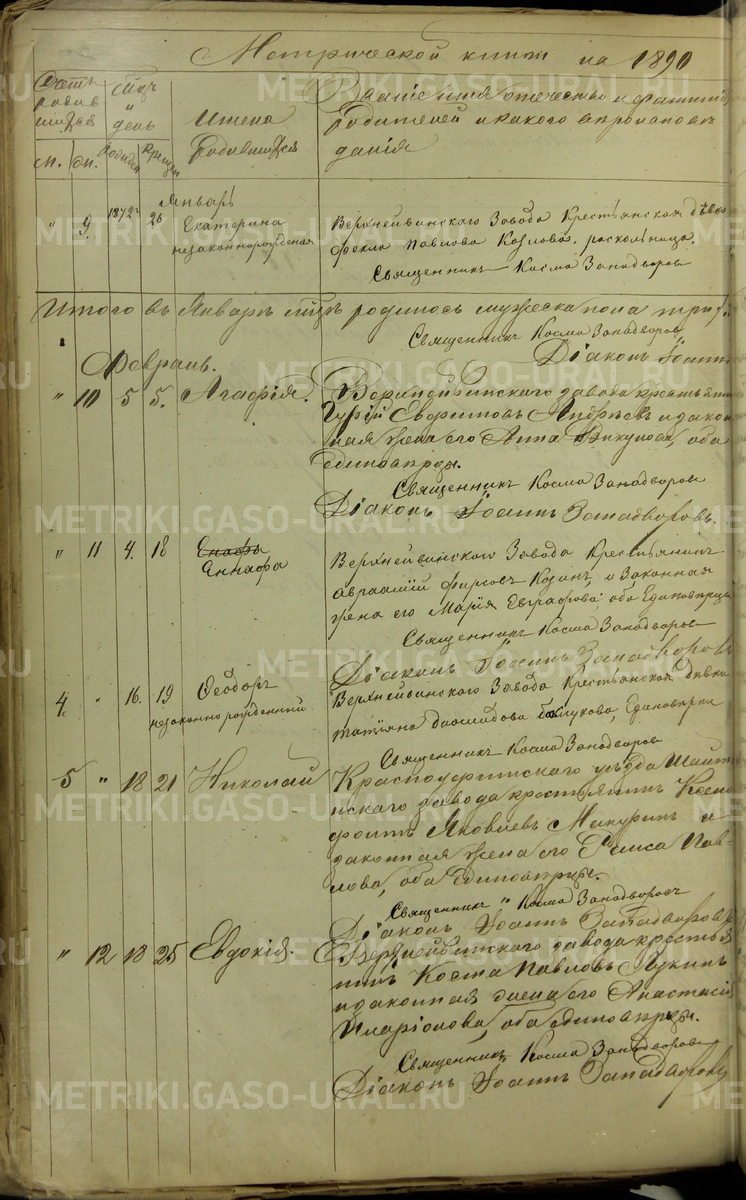 Метрической книги на 1890
Счетъ родив шихся
Мцъ и день
Имена
Родившихся
Званіе имя отечество и фамилія
Родителей и какого вѣроиспове
данія
м. ж. Рожден Крещен
Январь
" 9. 1872 26 Екатерина
незаконнорожденая
Верхнейвинскаго Завода Крестьянская дѣвка
Фекла Павлова Козлова раскольница.
Священникъ Косма Занадворовъ
Итого въ Январѣ мцѣ родилось мужеска пола три
Священникъ Косма Занадворовъ
Діаконъ Іоаннъ
Февраль.
" 10 5 5. Агафія.
завода крестьянин
Гурій Евфимовъ и закон
ная жена его Анна Викулова, оба
единовѣрцы.
Священникъ Косма Занадворовъ
Діаконъ Іоаннъ Занадворовъ.
" 11 4. 18
Еннафа
Верхнейвинскаго Завода Крестьянинъ
Авраамій Фирсовъ и Законная
жена его Марія Евграфова оба Единоверцы
Священникъ Косма Занадворовъ
Діаконъ Іоаннъ Занадворовъ
4. " 16. 19 Ѳеодоръ
незаконно рожденный
Верхнейвинскаго Завода Крестьянская Дѣвка
Татіана Единоверка
Священникъ Косма Занадворовъ
5 " 18 21 Николай
Красноуфимскаго уѣзда Шайтан
скаго завода крестьянинъ Ксено
фонтъ Яковлевъ Макуринъ и
законная жена его Раиса Пав
лова, оба единовѣрцы.
Священникъ Косма Занадворовъ
Діаконъ Іоаннъ Занадворовъ
" 12 18 25 Евдокія.
Верхнейвинскаго завода крестья
нинъ Косма Павловъ Лукинъ
и законная жена его Анастасія
Иларіонова, оба единовѣрцы.
Священникъ Косма Занадворовъ
Діаконъ Іоаннъ Занадворовъ
METRIKI.GASO-URAL.RU